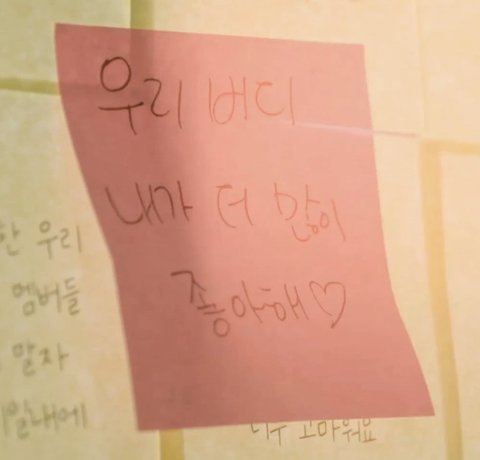 우리 버디
내가 더 많이
좋아해♡
한 우리
멤버들
말자
일내에
너무 고마워요